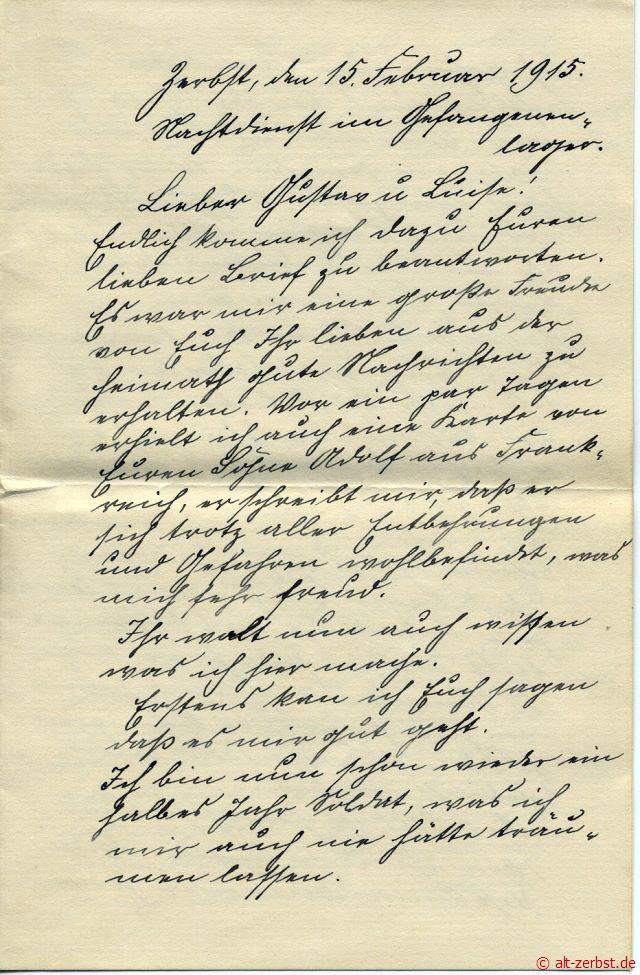 Zerbst, den 15. Februar 1915.
Nachtdienst im Gefangenen-
lager.
Lieber Gustav u Luise!
Endlich komme ich dazu Euren
lieben Brief zu beantworten.
Es war mir eine große Freude
von Euch Ihr lieben aus der
Heimath gute Nachrichten zu
erhalten. Vor ein par Tagen
erhielt ich auch eine Karte von
Euren Sohne Adolf aus Frank-
reich, er schreibt mir, daß er
sich trotz aller Entbehrungen
und Gefahren wohlbefindet, was
mich sehr freud.
Ihr walt nun auch wissen
was ich hier mache.
Erstens kan ich Euch sagen
daß es mir gut geht.
Ich bin nun schon wieder ein
halbes Jahr Soldat, was ich
mir auch nie hätte träu-
men lassen.
© alt-zerbst.de